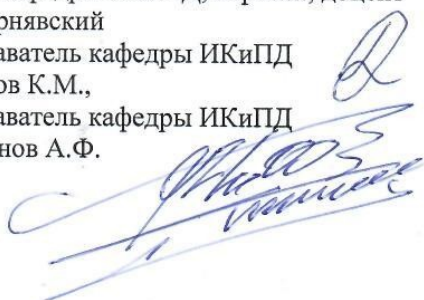 рнявский
аватель кафедры ИКиПД
ов К.М.,
аватель кафедры ИКиПД
нов А.Ф.